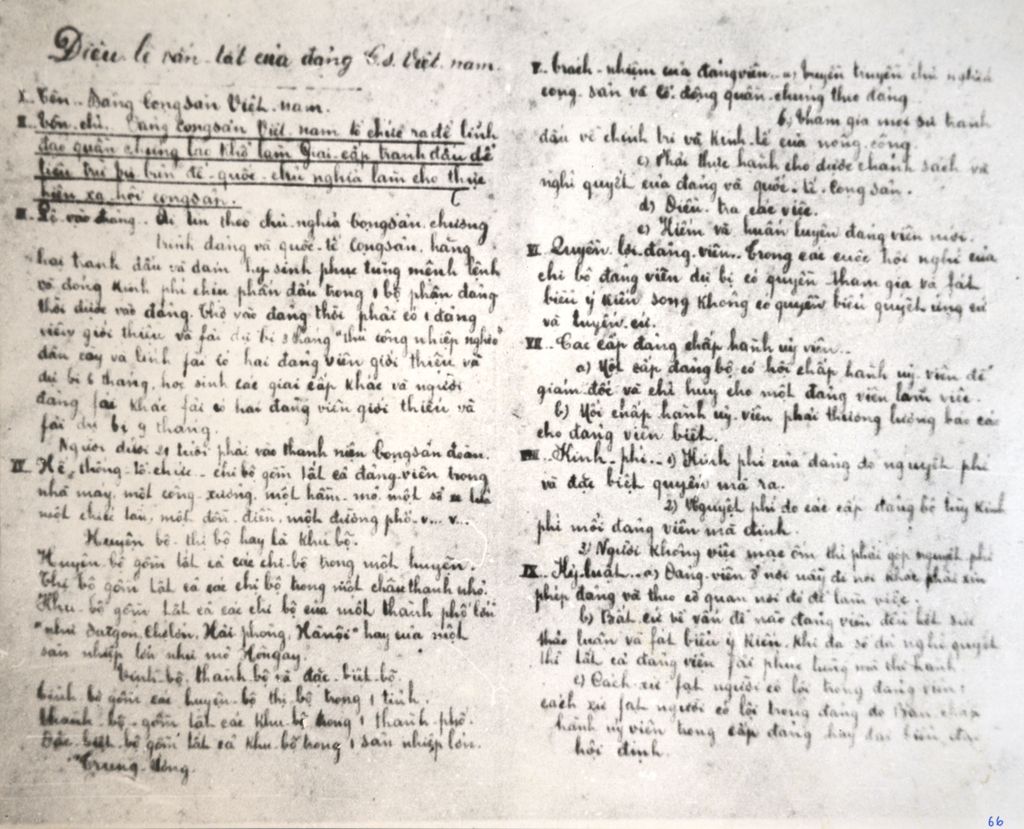 Điều lệ vắn-tắt của đảng C.S. Việt-nam.
I.. Tên.. Đảng Cộngsản Việt-nam.
II.. Tôn chỉ. Đảng Cộngsản Việt-nam tổ chức ra để lãnh
đạo quần chúng lao khổ làm giai-cấp tranh đấu để
tiêu trừ tư bản đế-quốc-chủ nghĩa làm cho thực
hiện xã hội cộngsản.
III.. Lệ vào đảng.. Ai tin theo chủ-nghĩa Cộngsản, chương
trình đảng và quốc-tế Cộngsản, hăng
hái tranh đấu và dám hy sinh phục tùng mệnh lệnh
và đóng kinh phí chịu phấn đấu trong 1 bộ phận đảng
thời được vào đảng. Chỗ vào đảng thời phải có 1 đảng
viên giới thiệu và fải dự bị 3 tháng "thủ công nghiệp nghèo"
dân cày và lính fải có hai đảng viên giới thiệu và
dự bị 6 tháng, học sinh các giai cấp khác và người
đảng fái khác fải có hai đảng viên giới thiệu và
fải dự bị 9 tháng.
Người dưới 21 tuổi phải vào thanh niên Cộngsản đoàn.
IV.. Hệ-thống-tổ-chức.. chi bộ gồm tất cả đảng viên trong
nhà máy, một công-xưởng, một hầm-mỏ, một sở
một chiếc tàu, một đồn-điền, một đường phố. v... v...
Huyện bộ - thị bộ hay là khu bộ.
Huyện bộ gồm tất cả các chi-bộ trong một huyện.
Thị bộ gồm tất cả các chi bộ trong một châu thành nhỏ.
Khu-bộ gồm tất cả các chi bộ của một thành phố lớn
"như Saigon, Chợlớn, Hải phòng, Hànội" hay của một
sản nghiệp lớn như mỏ Hòngay.
Tỉnh-bộ, thành bộ và đặc-biệt-bộ.
Tỉnh bộ gồm các huyện-bộ thị-bộ trong 1 tỉnh.
Thành-bộ-gồm tất các khu-bộ trong 1 thành-phố.
Đặc-biệt-bộ gồm tất cả khu-bộ trong 1 sản nghiệp lớn.
Trung-ương.
V.. Trách-nhiệm của đảngviên.. a) Tuyên truyền chủ nghĩa
cộng-sản và cổ-động quần-chúng theo đảng
b) Tham gia mọi sự tranh
đấu về chính trị và kinh-tế của nông-công.
c) Phải thực hành cho được chánh sách và
nghị quyết của đảng và quốc-tế-cộng sản.
d) Điều-tra các việc.
e) Kiếm và huấn luyện đảng viên mới.
VI Quyền lợi đảng-viên.. Trong các cuộc hội nghị của
chi bộ đảng viên dự bị có quyền tham gia và fát
biểu ý kiến song không có quyền biểu quyết, ứng cử
và tuyển-cử.
VII.. Các cấp đảng chấp hành uỷ viên..
a) Một cấp đảng bộ có hội chấp hành uỷ-viên để
giám đốc và chỉ huy cho một đảng viên làm việc.
b) Hội chấp hành uỷ-viên phải thường thường báo cáo
cho đảng viên biết.
VIII.. Kinh-phí.. 1) Kinh phí của đảng do nguyệt phí
và đặc biệt quyên mà ra.
2) Nguyệt phí do các cấp đảng bộ tùy kinh
phí mỗi đảng viên mà định.
3) Người không việc mặc ốm thì phải góp nguyệt phí
IX.. Kỷ-luật.. a) Đảng-viên ở nơi này đi nơi khác phải xin
phép đảng và theo cơ quan nơi đó để làm việc
b) Bất cứ về vấn đề nào đảng viên đều hết sức
thảo luận và fát biểu ý kiến, khi đa số đã nghị quyết
thì tất cả đảng viên fải phục tùng mà thi hành
c) Cách-xử-fạt người có lỗi trong đảng viên:
cách xử fạt người có lỗi trong đảng do Ban chấp
hành uỷ viên trong cấp đảng hay đại biểu đại
hội định.
66